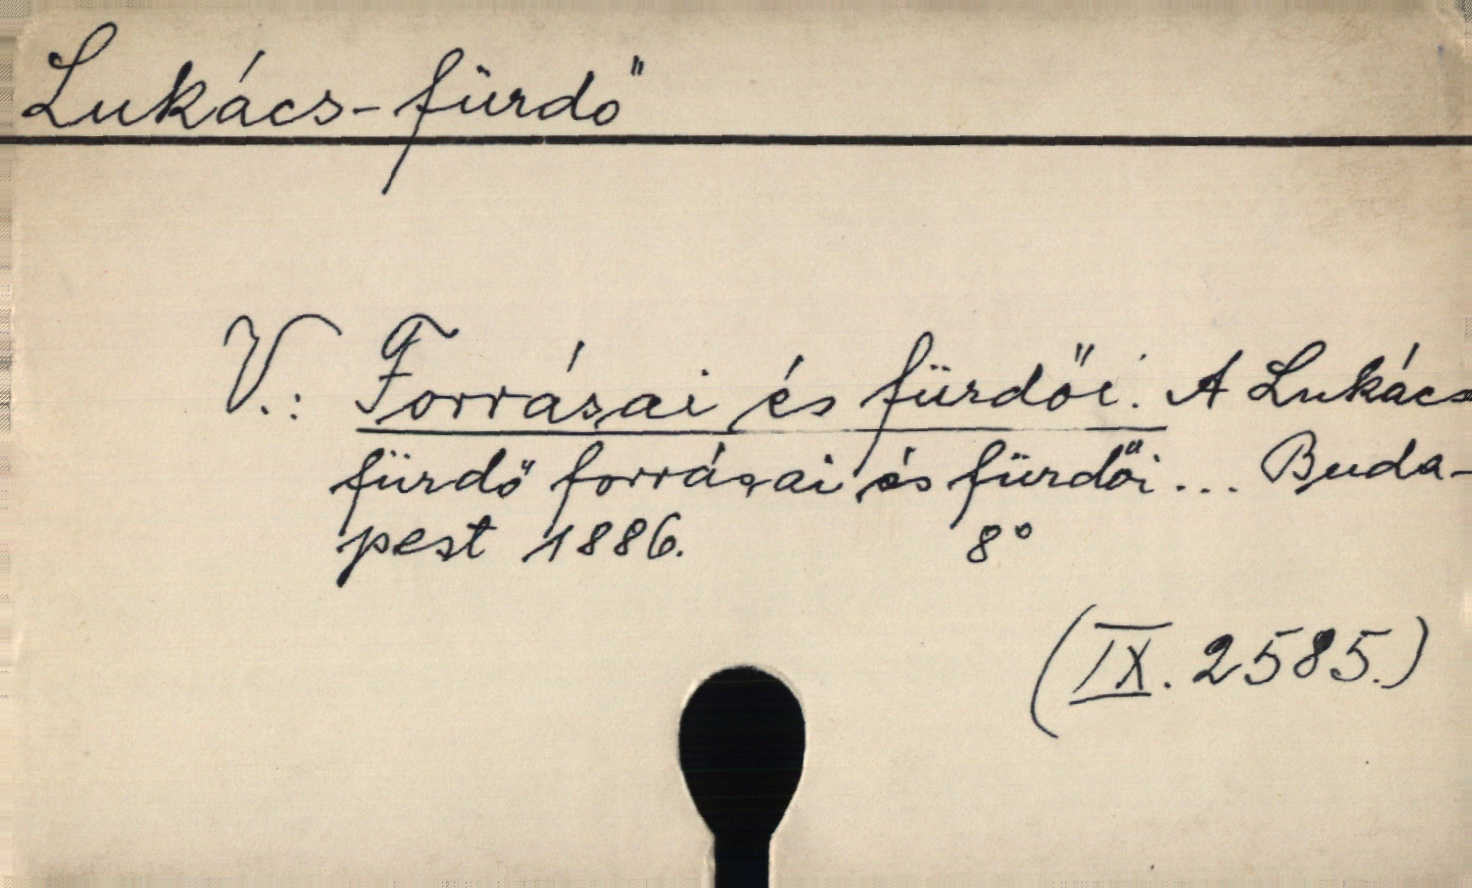 Lukács-fürdő
V.: Forrásai és fürdői. A Lukács
fürdő forrásai és fürdői... Buda-
pest 1886. 8°
(IX. 2585.)